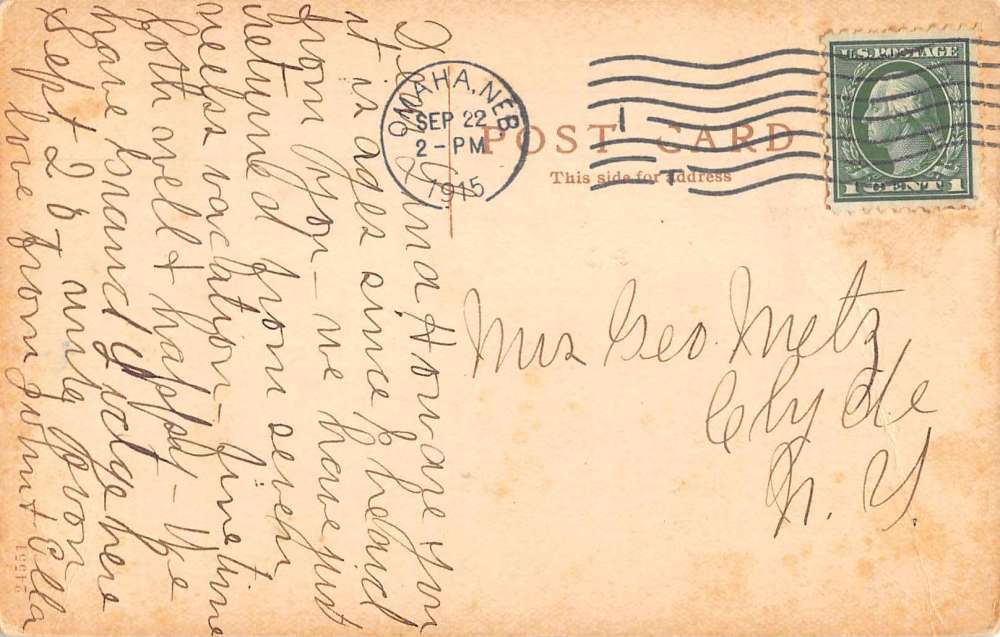 POST CARD
This side for address
OMAHA, NEB.
SEP 22
2-PM
1915
1
U.S. POSTAGE
1 CENT 1
Mrs Geo. Metz
Clyde
N. Y.
Dear How are you
it is ages since I heard
from you - we have just
returned from seven
weeks vacation - fine time
both well & happy - We
have Grand Lodge here
Sept 26 Gown
love from John & Ella